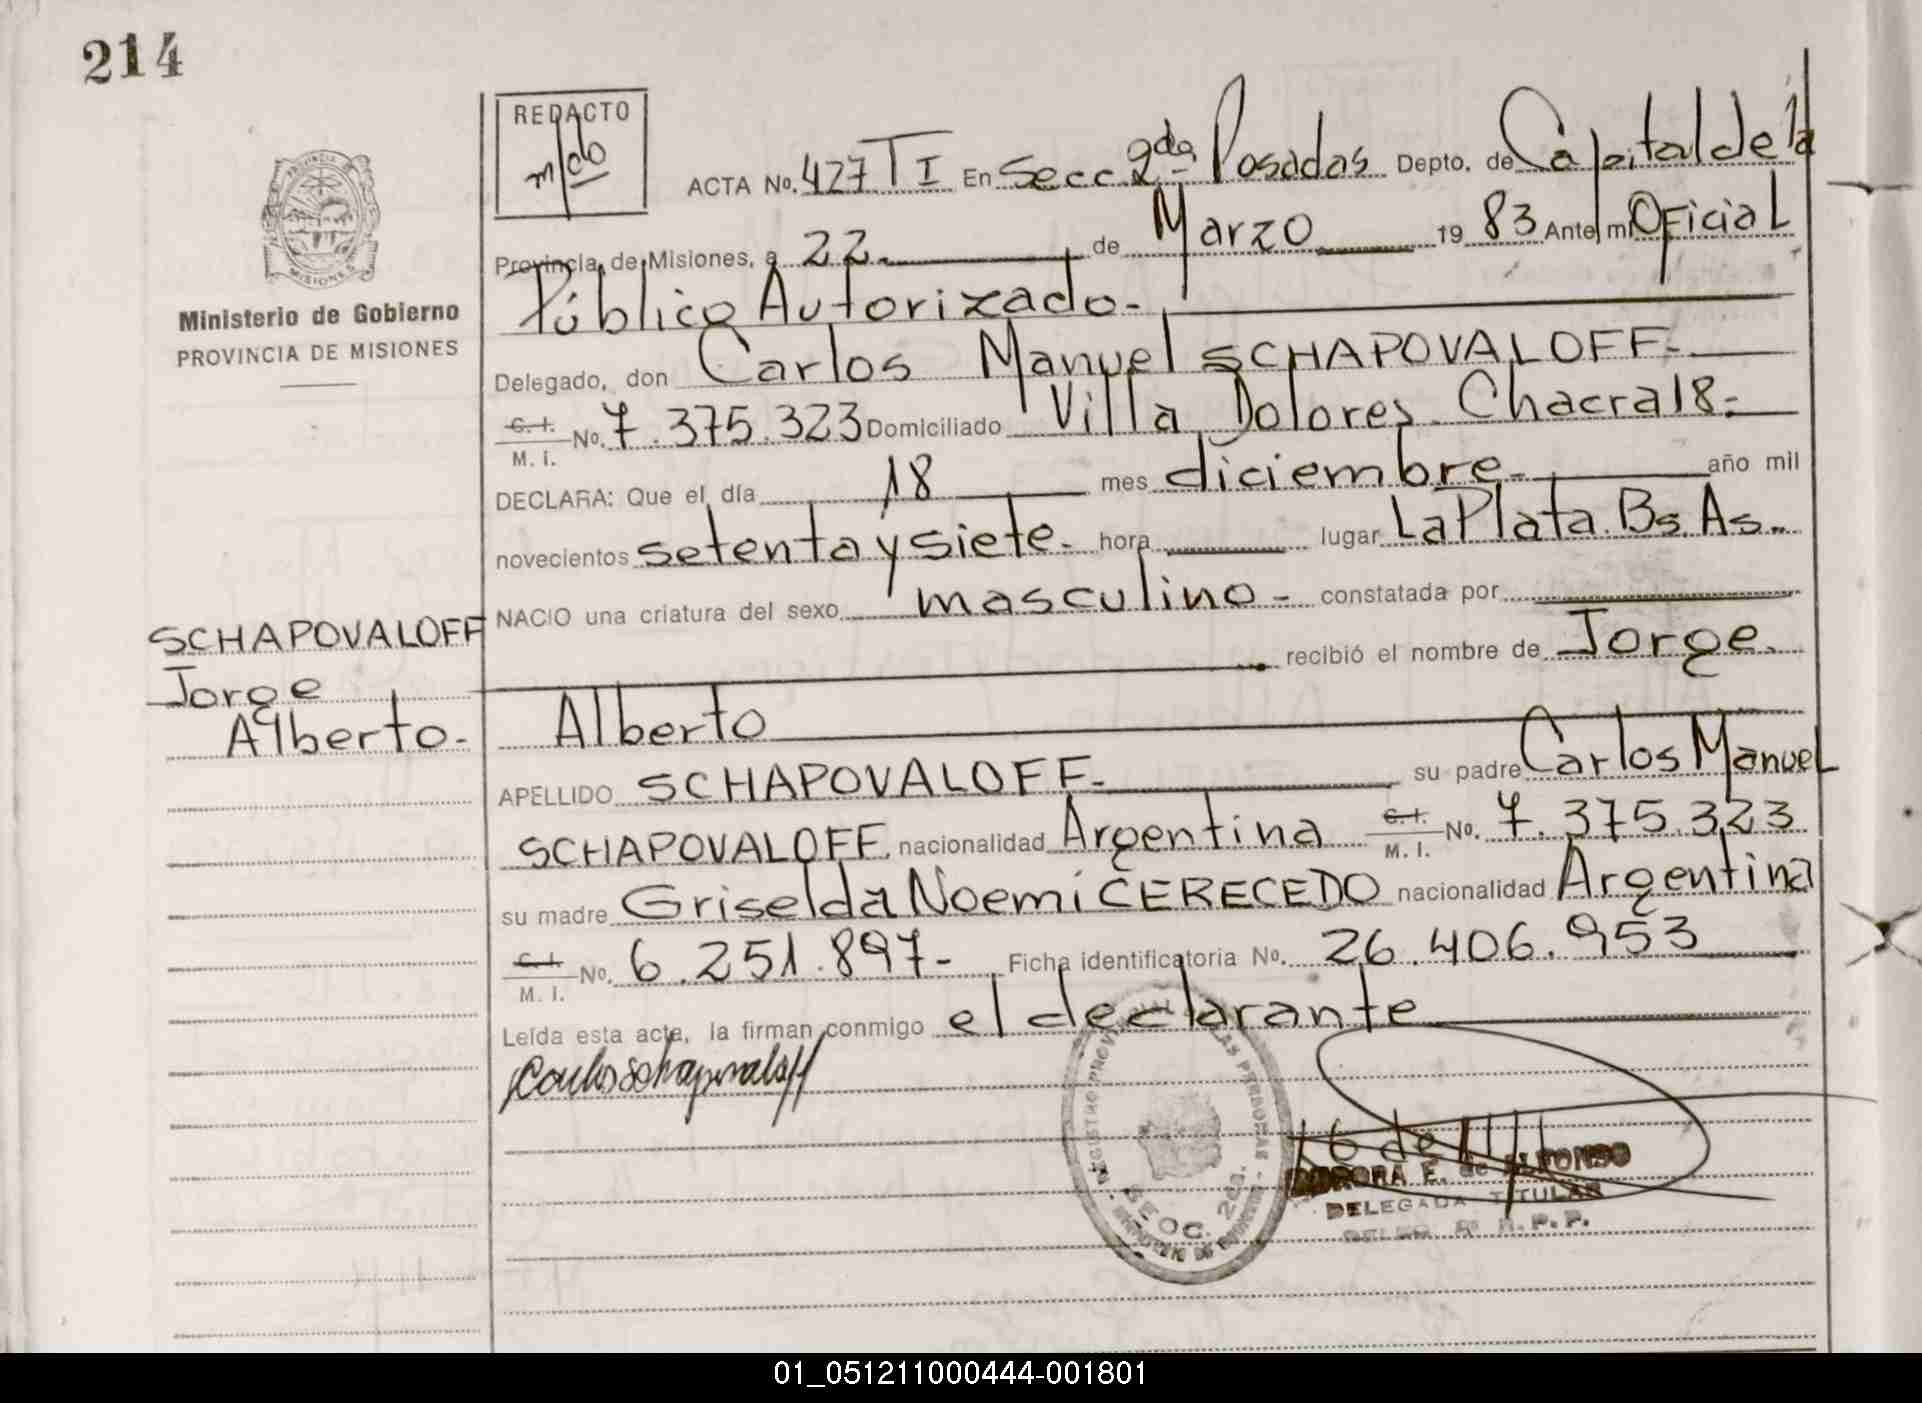 214
REDACTO
m/do
ACTA No. 427 T I En Secc 2da Posadas Depto. de Capital de la
Provincia de Misiones, a 22 de Marzo 1983 Ante mi Oficial
Público Autorizado.-
Ministerio de Gobierno
PROVINCIA DE MISIONES
Delegado, don Carlos Manuel SCHAPOVALOFF.-
C. I.
M. I. No. 7.375.323 Domiciliado Villa Dolores Chacra 18.-
DECLARA: Que el día 18 mes diciembre.- año mil
novecientos setenta y siete.- hora lugar La Plata Bs. As..
NACIO una criatura del sexo masculino.- constatada por
recibió el nombre de Jorge
Alberto
SCHAPOVALOFF
Jorge
Alberto.-
APELLIDO SCHAPOVALOFF.- su padre Carlos Manuel
SCHAPOVALOFF. nacionalidad Argentina C. I. M. I. No. 7.375.323
su madre Griselda Noemí CERECEDO nacionalidad Argentina
C. I.
M. I. No. 6.251.897.- Ficha identificatoria No. 26.406.953
Leída esta acta, la firman conmigo el declarante
Carlos Schapovaloff
SECC. 2da.
AURORA E. de ALFONSO
DELEGADA TITULAR
MISIONES
01_051211000444-001801